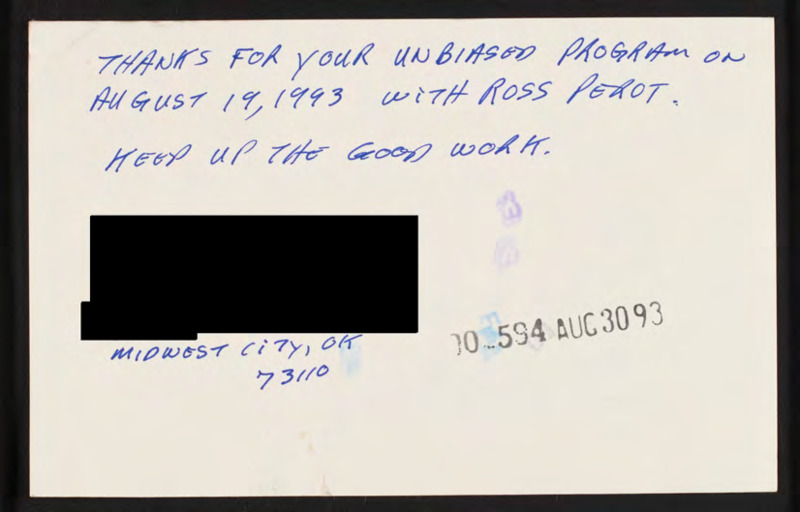 THANKS FOR YOUR UNBIASED PROGRAM ON
AUGUST 19, 1993 WITH ROSS PEROT.
KEEP UP THE GOOD WORK.
MIDWEST CITY, OK
73110
594 AUG 30 93